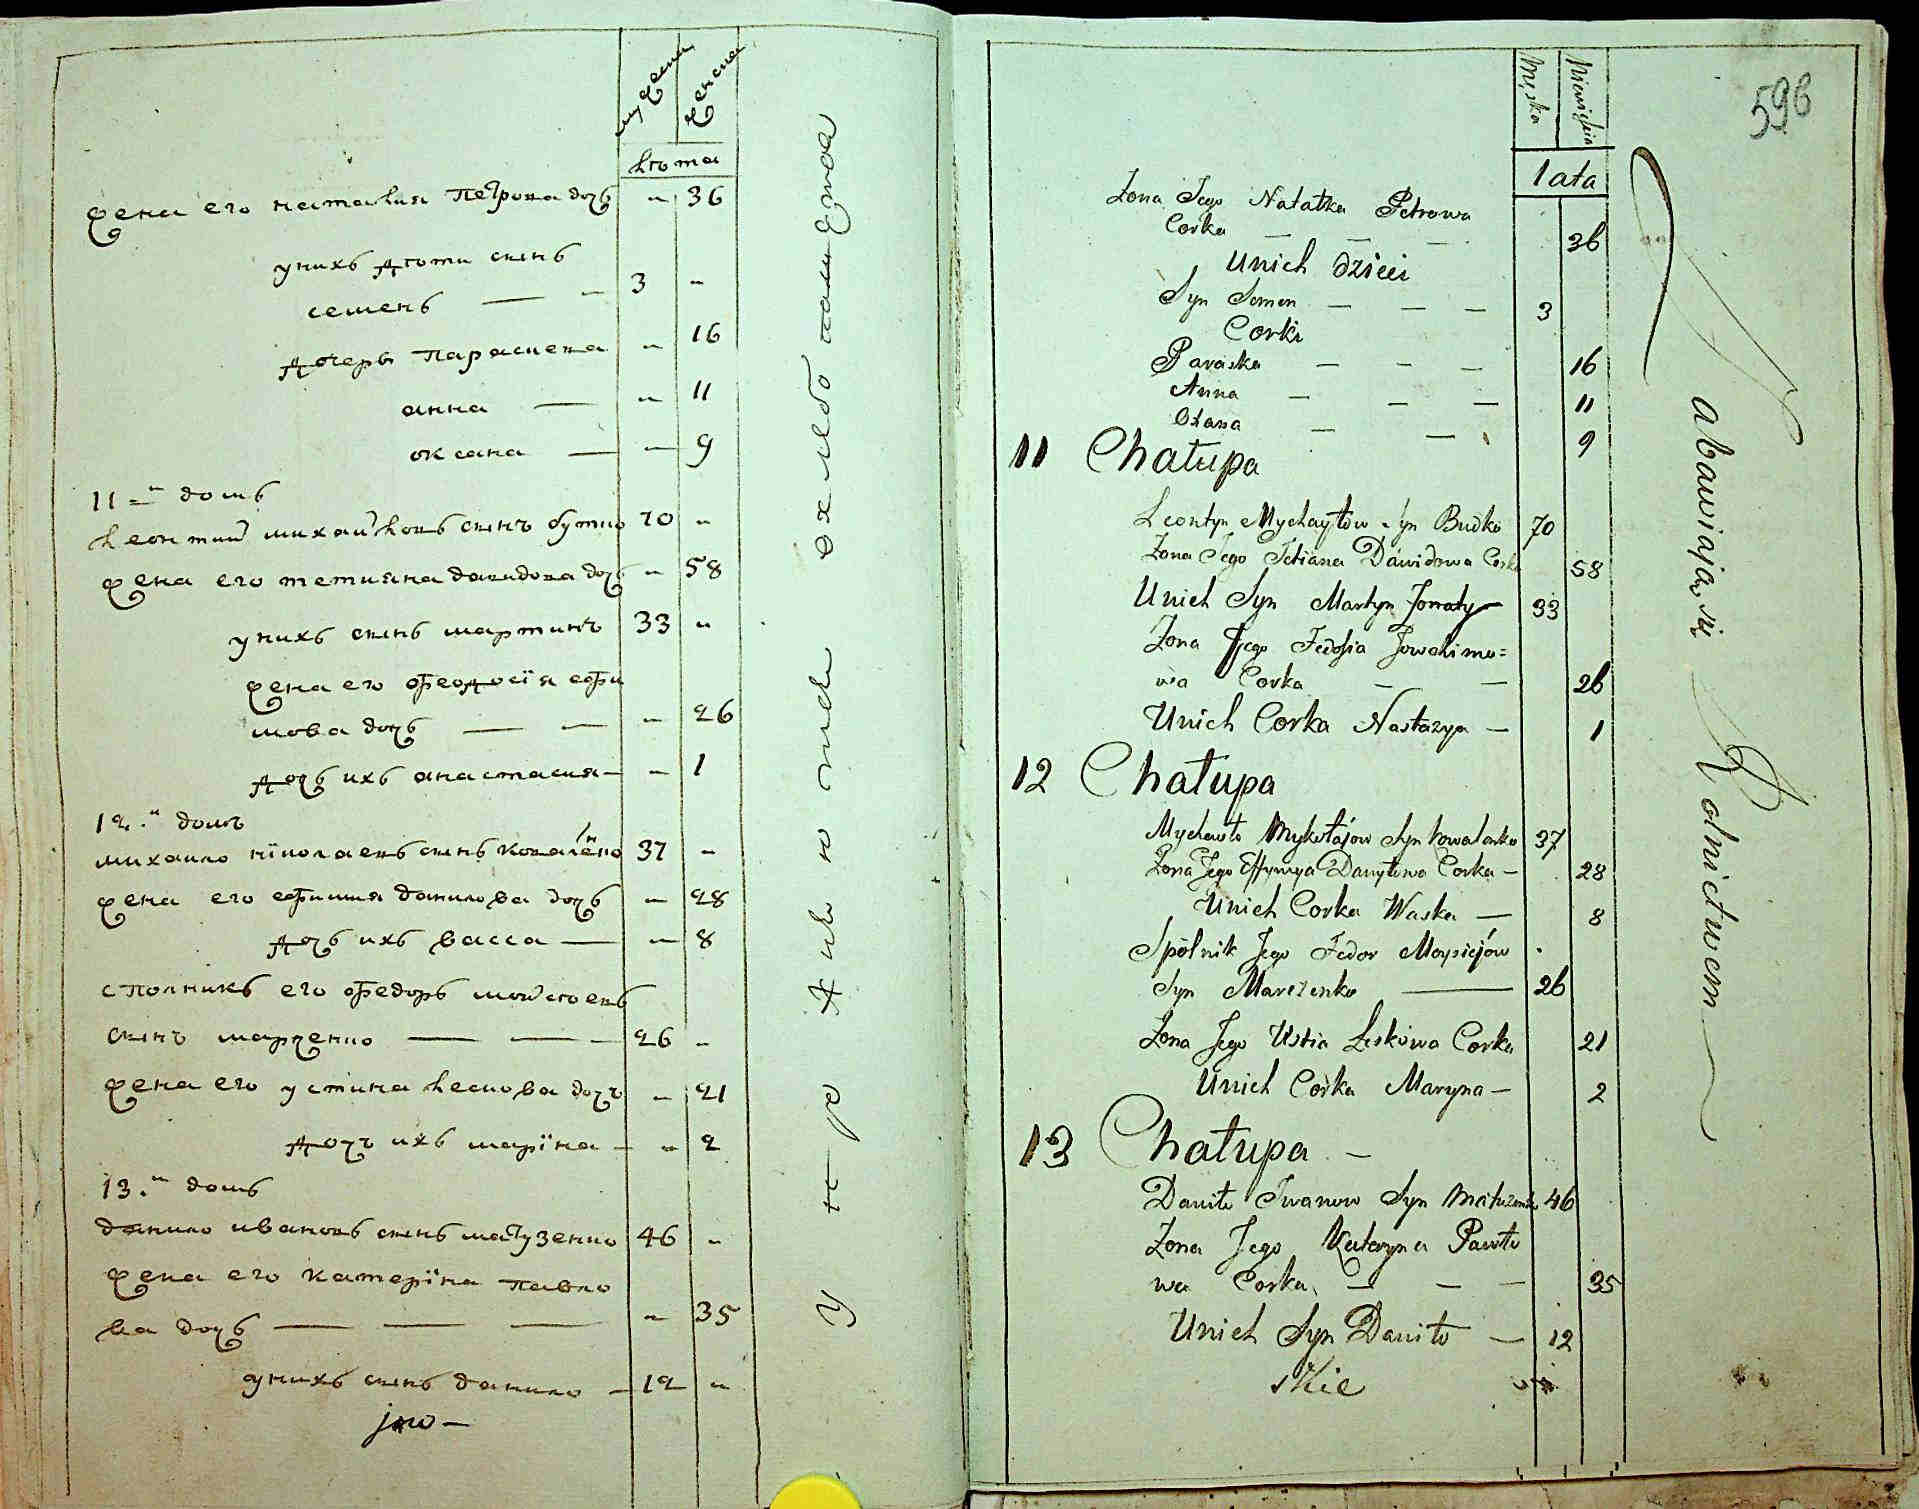 мужеска
женска
лѣта
жена его наталия Петрова дочъ " 36
унихъ дѣти синъ
семенъ — — 3 "
дочерѣ Параскева " 16
анна — " 11
оксана — — 9
11-й домъ
леонтий михайловъ синъ будко 70 "
жена его тетияна давидова дочъ " 58
унихъ синъ мартинъ 33 "
жена его феодосїя ефи
мова дочъ — — " 26
дочъ ихъ анастасия — " 1
12-й домъ
михаило николаевъ синъ коваленко 37 "
жена его ефимия данилова дочъ — 28
дочъ ихъ васса — — 8
сполникъ его федоръ мойсѣевъ
синъ марченко — — — 26 "
жена его устина леснова дочъ " 21
дочъ ихъ марїна — " 2
13-й домъ
данило ивановъ синъ матузенко 46 "
жена его катерїна павло
ва дочъ — — — " 35
унихъ синъ данило — 12 "
упражняются хлебопашествомъ
596
Męska
Niewieścia
lata
Zona Jego Natałka Petrowa
Corka — — — 36
Unich dzieci
Syn Semen — — — 3
Corki
Paraska — — — 16
Anna — — — 11
Oxana — — 9
11 Chałupa
Leontyn Mychayłow Syn Budko 70
Zona Jego Tetiana Dawidowa Corka 58
Unich Syn Martyn Zonaty — 33
Zona Jego Fedosia Jowchimo=
wa Corka — — 26
Unich Corka Nastazya — 1
12 Chałupa
Mychaiło Mykołajow Syn Kowalenko 37
Zona Jego Effymya Danyłowa Corka — 28
Unich Corka Waska — 8
Spólnik Jego Fedor Moysiejów
Syn Marczenko — 26
Zona Jego Ustia Leskowa Corka 21
Unich Corka Maryna — 2
13 Chałupa —
Daniło Iwanow Syn Matuzenko 46
Zona Jego Kateryna Pawło
wa Corka — — — 35
Unich Syn Daniło — 12
skie
Zabawiają się Rolnictwem